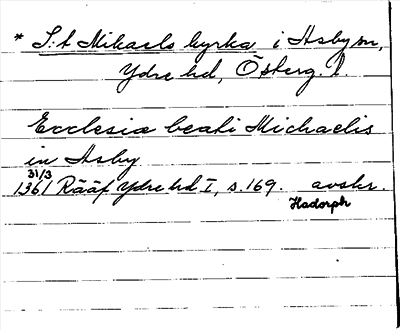 * S:t Mikaels kyrka i Asby sn,
Ydre hd, Österg. l
Ecclesia beati Michaelis
in Asby
31/3
1361 Rääf Ydre hd I, s. 169. avskr.
Hadorph